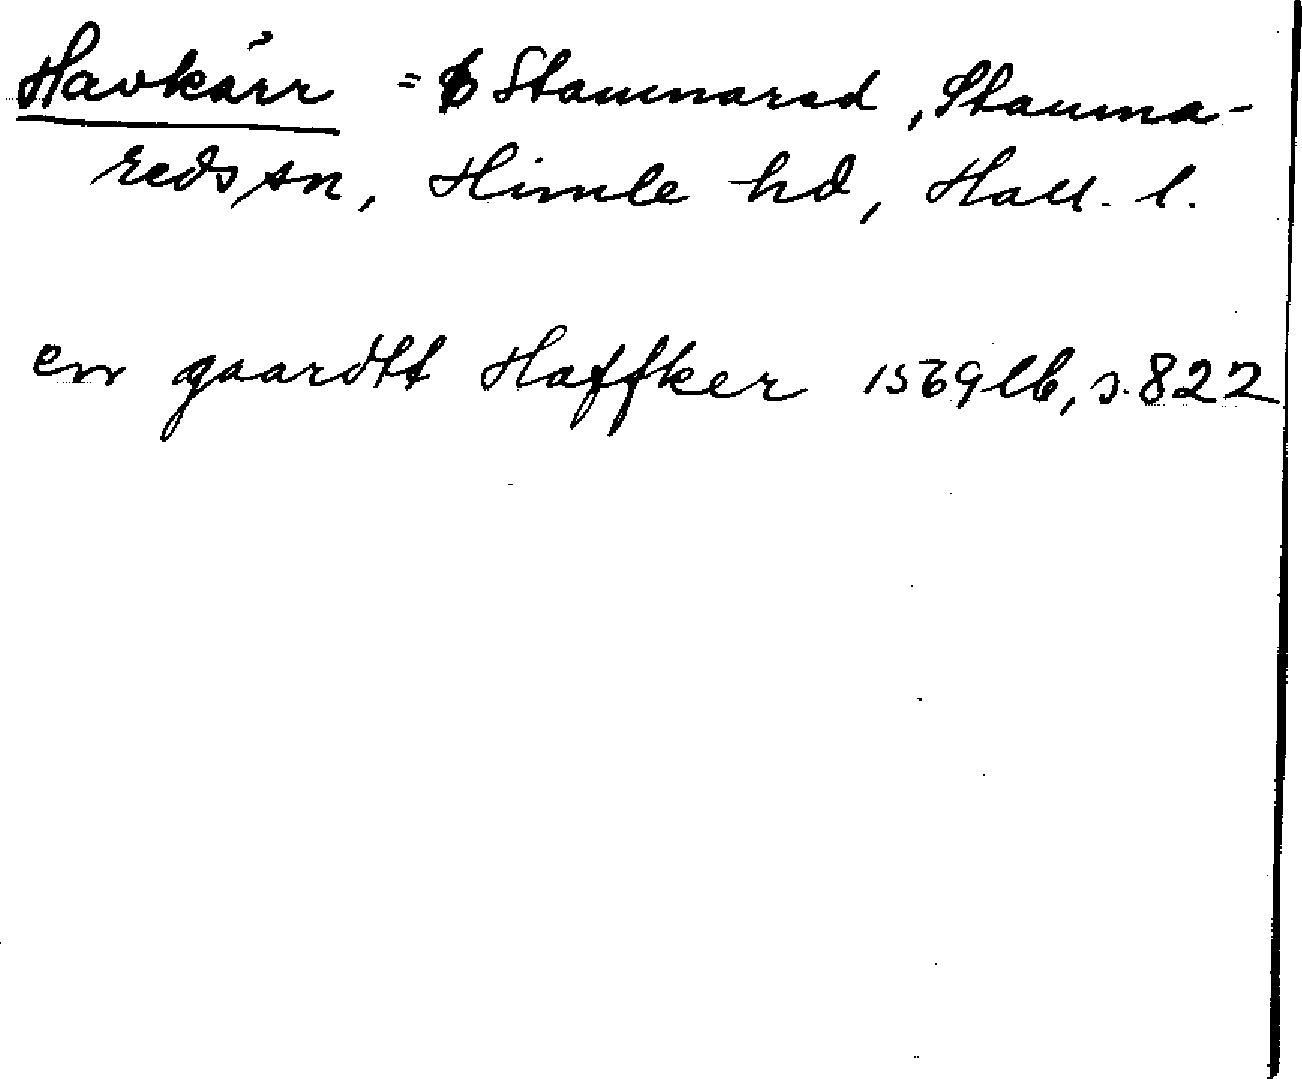 Havkärr = Stamnared, Stamna-
reds sn, Himle hd, Hall. l.
en gaardtt Haffker 1569 lb, s. 822